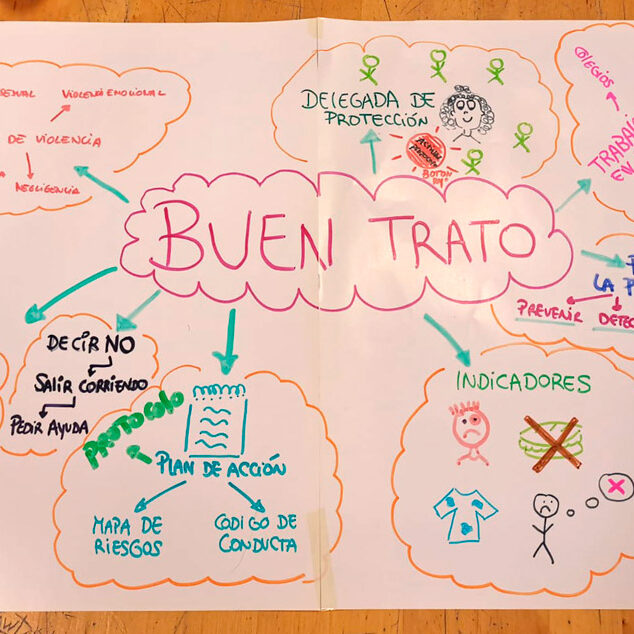 VIOLENCIA EMOCIONAL
DE VIOLENCIA
NEGLIGENCIA
DELEGADA DE
PROTECCIÓN
BOTON
COLEGIOS
BUEN TRATO
LA
PREVENIR
DECIR NO
SALIR CORRIENDO
PEDIR AYUDA
PROTOCOLO
PLAN DE ACCIÓN
MAPA DE
RIESGOS
CODIGO DE
CONDUCTA
INDICADORES